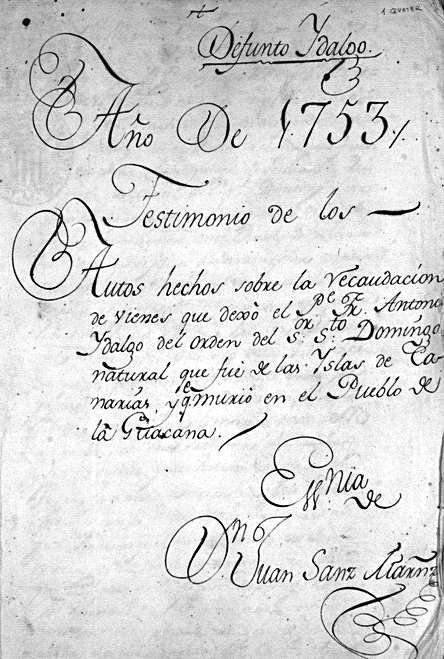 1 QUATER
Defunto Ydalgo.
Año De 1753.
Testimonio de los
Autos hechos sobre la recaudacion
de vienes que dexò el P.e Fr. Antonio
Ydalgo del orden del S.or S.to Domingo
natural que fue de las Yslas de Ca-
narias, y q.e murio en el Pueblo de
la Guacana.
de
D.n Juan Sanz Marñz